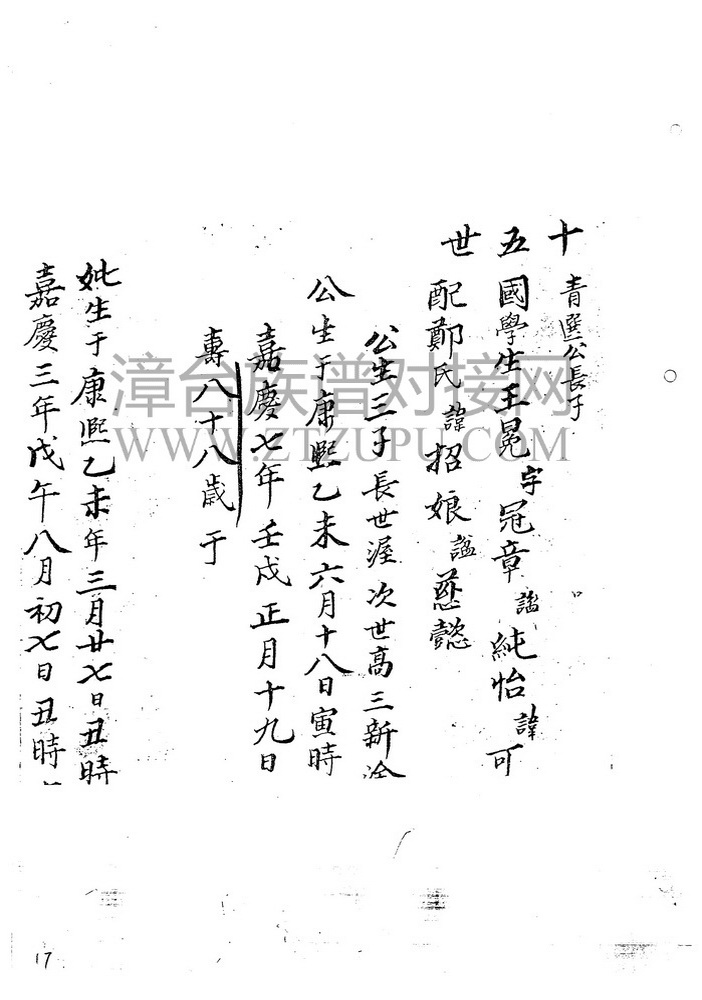 十五世
青選公長子
國學生王冕字冠章諡純怡諱可
配鄭氏諱招娘諡慈懿
公生三子長世渥次世高三新
公生于康熙乙未六月十八日寅時
嘉慶七年壬戌正月十九日
壽八十八歲于
妣生于康熙乙未年三月廿七日丑時
嘉慶三年戊午八月初七日丑時
漳台族谱对接网
WWW.ZTZUPU.COM
17